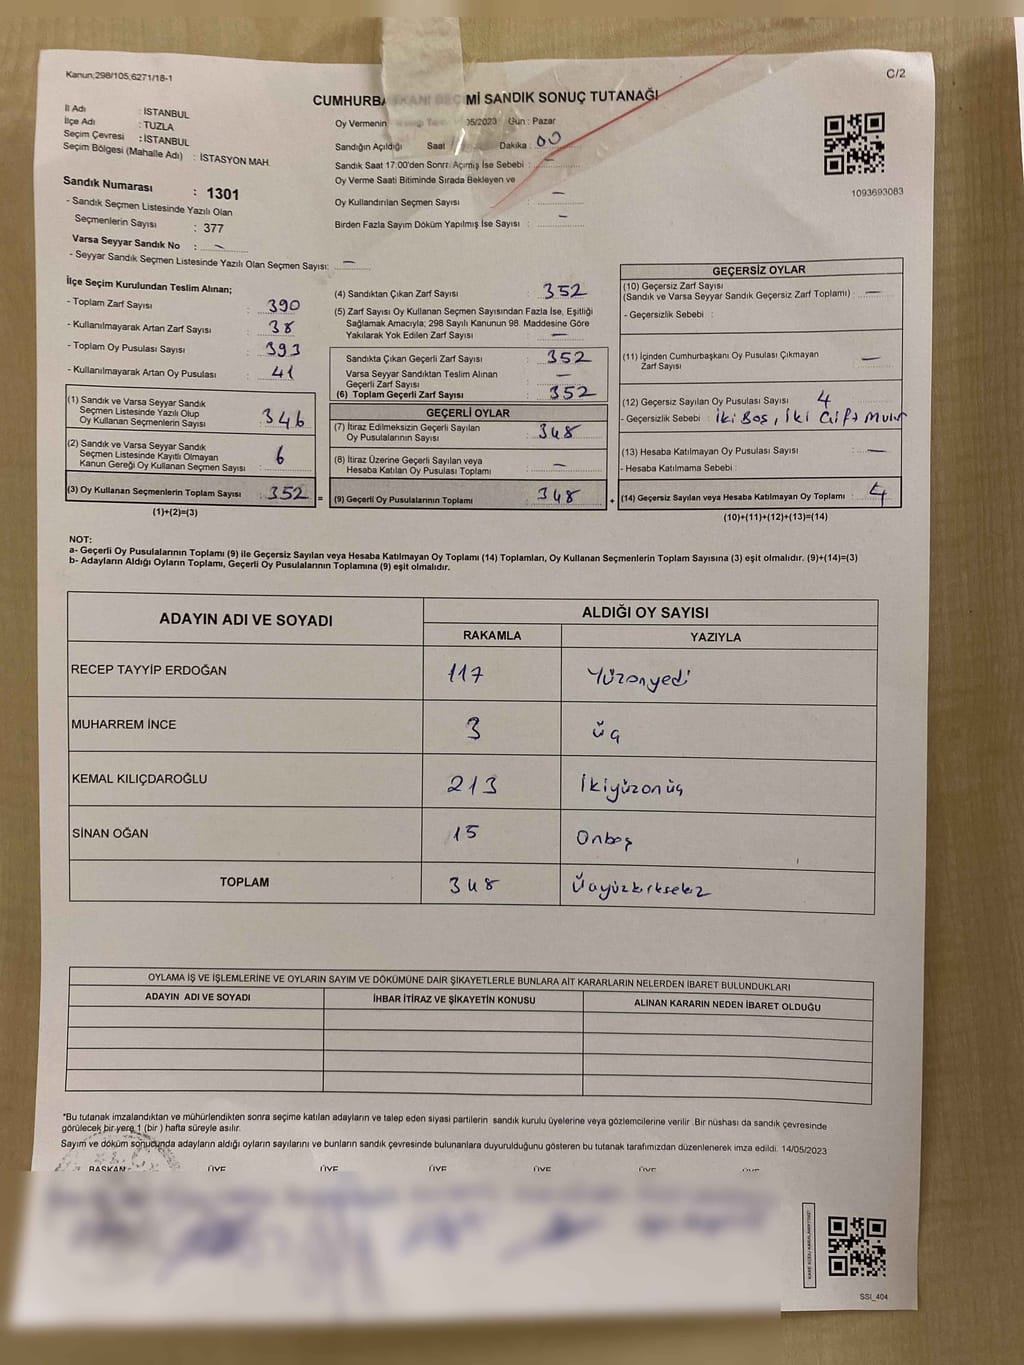 Kanun;298/105,6271/18-1
C/2
CUMHURBAŞKANI SEÇİMİ SANDIK SONUÇ TUTANAĞI
İl Adı : İSTANBUL
İlçe Adı : TUZLA
Seçim Çevresi : İSTANBUL
Seçim Bölgesi (Mahalle Adı) : İSTASYON MAH.
Sandık Numarası : 1301
- Sandık Seçmen Listesinde Yazılı Olan
Seçmenlerin Sayısı : 377
Varsa Seyyar Sandık No : –
- Seyyar Sandık Seçmen Listesinde Yazılı Olan Seçmen Sayısı: –
Oy Vermenin 05/2023 Gün : Pazar
Sandığın Açıldığı Saat Dakika : 00
Sandık Saat 17:00'den Sonra Açımış İse Sebebi : –
Oy Verme Saati Bitiminde Sırada Bekleyen ve
Oy Kullandırılan Seçmen Sayısı : –
Birden Fazla Sayım Döküm Yapılmış İse Sayısı : –
1093693083
İlçe Seçim Kurulundan Teslim Alınan;
- Toplam Zarf Sayısı : 390
- Kullanılmayarak Artan Zarf Sayısı : 38
- Toplam Oy Pusulası Sayısı : 393
- Kullanılmayarak Artan Oy Pusulası : 41
(1) Sandık ve Varsa Seyyar Sandık
Seçmen Listesinde Yazılı Olup
Oy Kullanan Seçmenlerin Sayısı : 346
(2) Sandık ve Varsa Seyyar Sandık
Seçmen Listesinde Kayıtlı Olmayan
Kanun Gereği Oy Kullanan Seçmen Sayısı : 6
(3) Oy Kullanan Seçmenlerin Toplam Sayısı : 352 =
(1)+(2)=(3)
(4) Sandıktan Çıkan Zarf Sayısı : 352
(5) Zarf Sayısı Oy Kullanan Seçmen Sayısından Fazla İse, Eşitliği
Sağlamak Amacıyla; 298 Sayılı Kanunun 98. Maddesine Göre
Yakılarak Yok Edilen Zarf Sayısı : –
Sandıkta Çıkan Geçerli Zarf Sayısı : 352
Varsa Seyyar Sandıktan Teslim Alınan
Geçerli Zarf Sayısı : –
(6) Toplam Geçerli Zarf Sayısı : 352
GEÇERLİ OYLAR
(7) İtiraz Edilmeksizin Geçerli Sayılan
Oy Pusulalarının Sayısı : 348
(8) İtiraz Üzerine Geçerli Sayılan veya
Hesaba Katılan Oy Pusulası Toplamı : –
(9) Geçerli Oy Pusulalarının Toplamı : 348 +
GEÇERSİZ OYLAR
(10) Geçersiz Zarf Sayısı
(Sandık ve Varsa Seyyar Sandık Geçersiz Zarf Toplamı) : –
- Geçersizlik Sebebi :
(11) İçinden Cumhurbaşkanı Oy Pusulası Çıkmayan
Zarf Sayısı : –
(12) Geçersiz Sayılan Oy Pusulası Sayısı : 4
- Geçersizlik Sebebi : İki Boş, İki Çift Mühür
(13) Hesaba Katılmayan Oy Pusulası Sayısı : –
- Hesaba Katılmama Sebebi :
(14) Geçersiz Sayılan veya Hesaba Katılmayan Oy Toplamı : 4
(10)+(11)+(12)+(13)=(14)
NOT:
a- Geçerli Oy Pusulalarının Toplamı (9) ile Geçersiz Sayılan veya Hesaba Katılmayan Oy Toplamı (14) Toplamları, Oy Kullanan Seçmenlerin Toplam Sayısına (3) eşit olmalıdır. (9)+(14)=(3)
b- Adayların Aldığı Oyların Toplamı, Geçerli Oy Pusulalarının Toplamına (9) eşit olmalıdır.
ADAYIN ADI VE SOYADI
ALDIĞI OY SAYISI
RAKAMLA YAZIYLA
RECEP TAYYİP ERDOĞAN 117 Yüzonyedi
MUHARREM İNCE 3 Üç
KEMAL KILIÇDAROĞLU 213 İkiyüzonüç
SİNAN OĞAN 15 Onbeş
TOPLAM 348 Üçyüzkırksekiz
OYLAMA İŞ VE İŞLEMLERİNE VE OYLARIN SAYIM VE DÖKÜMÜNE DAİR ŞİKAYETLERLE BUNLARA AİT KARARLARIN NELERDEN İBARET BULUNDUKLARI
ADAYIN ADI VE SOYADI İHBAR İTİRAZ VE ŞİKAYETİN KONUSU ALINAN KARARIN NEDEN İBARET OLDUĞU
*Bu tutanak imzalandıktan ve mühürlendikten sonra seçime katılan adayların ve talep eden siyasi partilerin sandık kurulu üyelerine veya gözlemcilerine verilir .Bir nüshası da sandık çevresinde
görülecek bir yere 1 (bir ) hafta süreyle asılır.
Sayım ve döküm sonucunda adayların aldığı oyların sayılarını ve bunların sandık çevresinde bulunanlara duyurulduğunu gösteren bu tutanak tarafımızdan düzenlenerek imza edildi. 14/05/2023
BAŞKAN ÜYE ÜYE ÜYE ÜYE ÜYE ÜYE
SSI_404